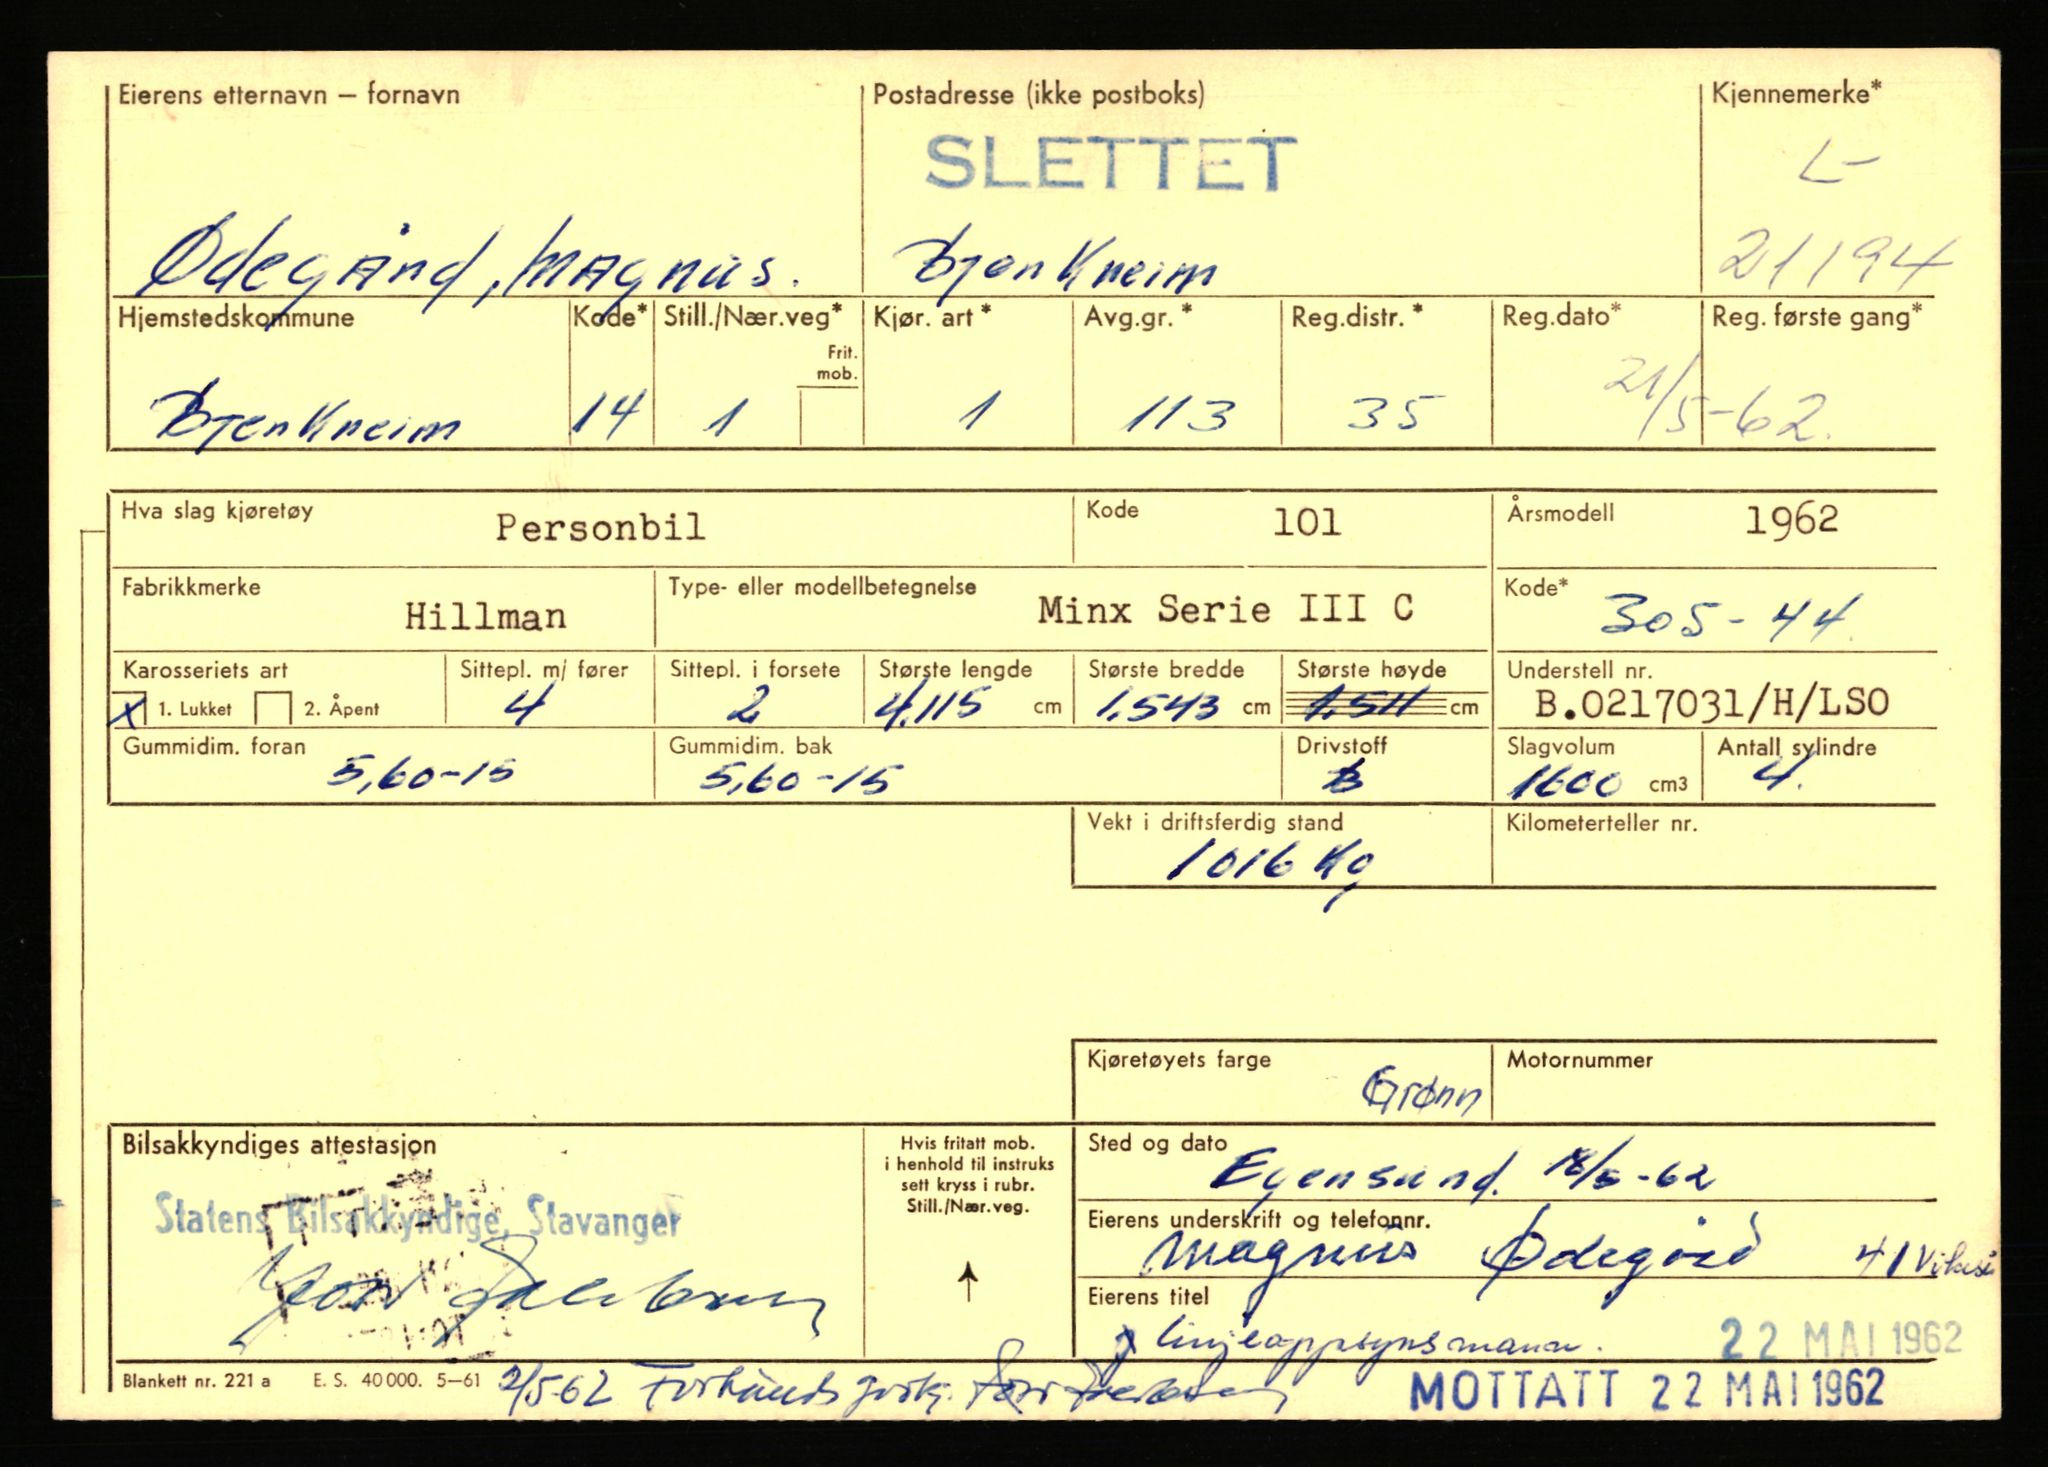 Eierens etternavn – fornavn Postadresse (ikke postboks) Kjennemerke*
SLETTET L-
Ødegård, Magnus. Bjerkreim 21194
Hjemstedskommune Kode* Still./Nær.veg* Kjør. art * Avg.gr. * Reg.distr. * Reg.dato* Reg. første gang*
Frit.
mob.
Bjerkreim 14 1 1 113 35 21/5-62.
Hva slag kjøretøy Personbil Kode 101 Årsmodell 1962
Fabrikkmerke Type- eller modellbetegnelse Kode*
Hillman Minx Serie III C 305-44.
Karosseriets art Sittepl. m/ fører Sittepl. i forsete Største lengde Største bredde Største høyde Understell nr.
x 1. Lukket 2. Åpent 4 2 4.115 cm 1.543 cm 1.511 cm B.0217031/H/LSO
Gummidim. foran Gummidim. bak Drivstoff Slagvolum Antall sylindre
5,60-15 5,60-15 B 1600 cm3 4.
Vekt i driftsferdig stand Kilometerteller nr.
1016 Kg
Kjøretøyets farge Motornummer
Grønn
Bilsakkyndiges attestasjon Hvis fritatt mob.
i henhold til instruks
sett kryss i rubr.
Still./Nær.veg.
Sted og dato
Egersund. 18/5-62
Statens Bilsakkyndige, Stavanger
Eierens underskrift og telefonnr.
Magnus Ødegård 41 Vikeså
Eierens titel
linjeoppsynsmann. 22 MAI 1962
Blankett nr. 221 a E. S. 40 000. 5–61 2/5-62 MOTTATT 22 MAI 1962